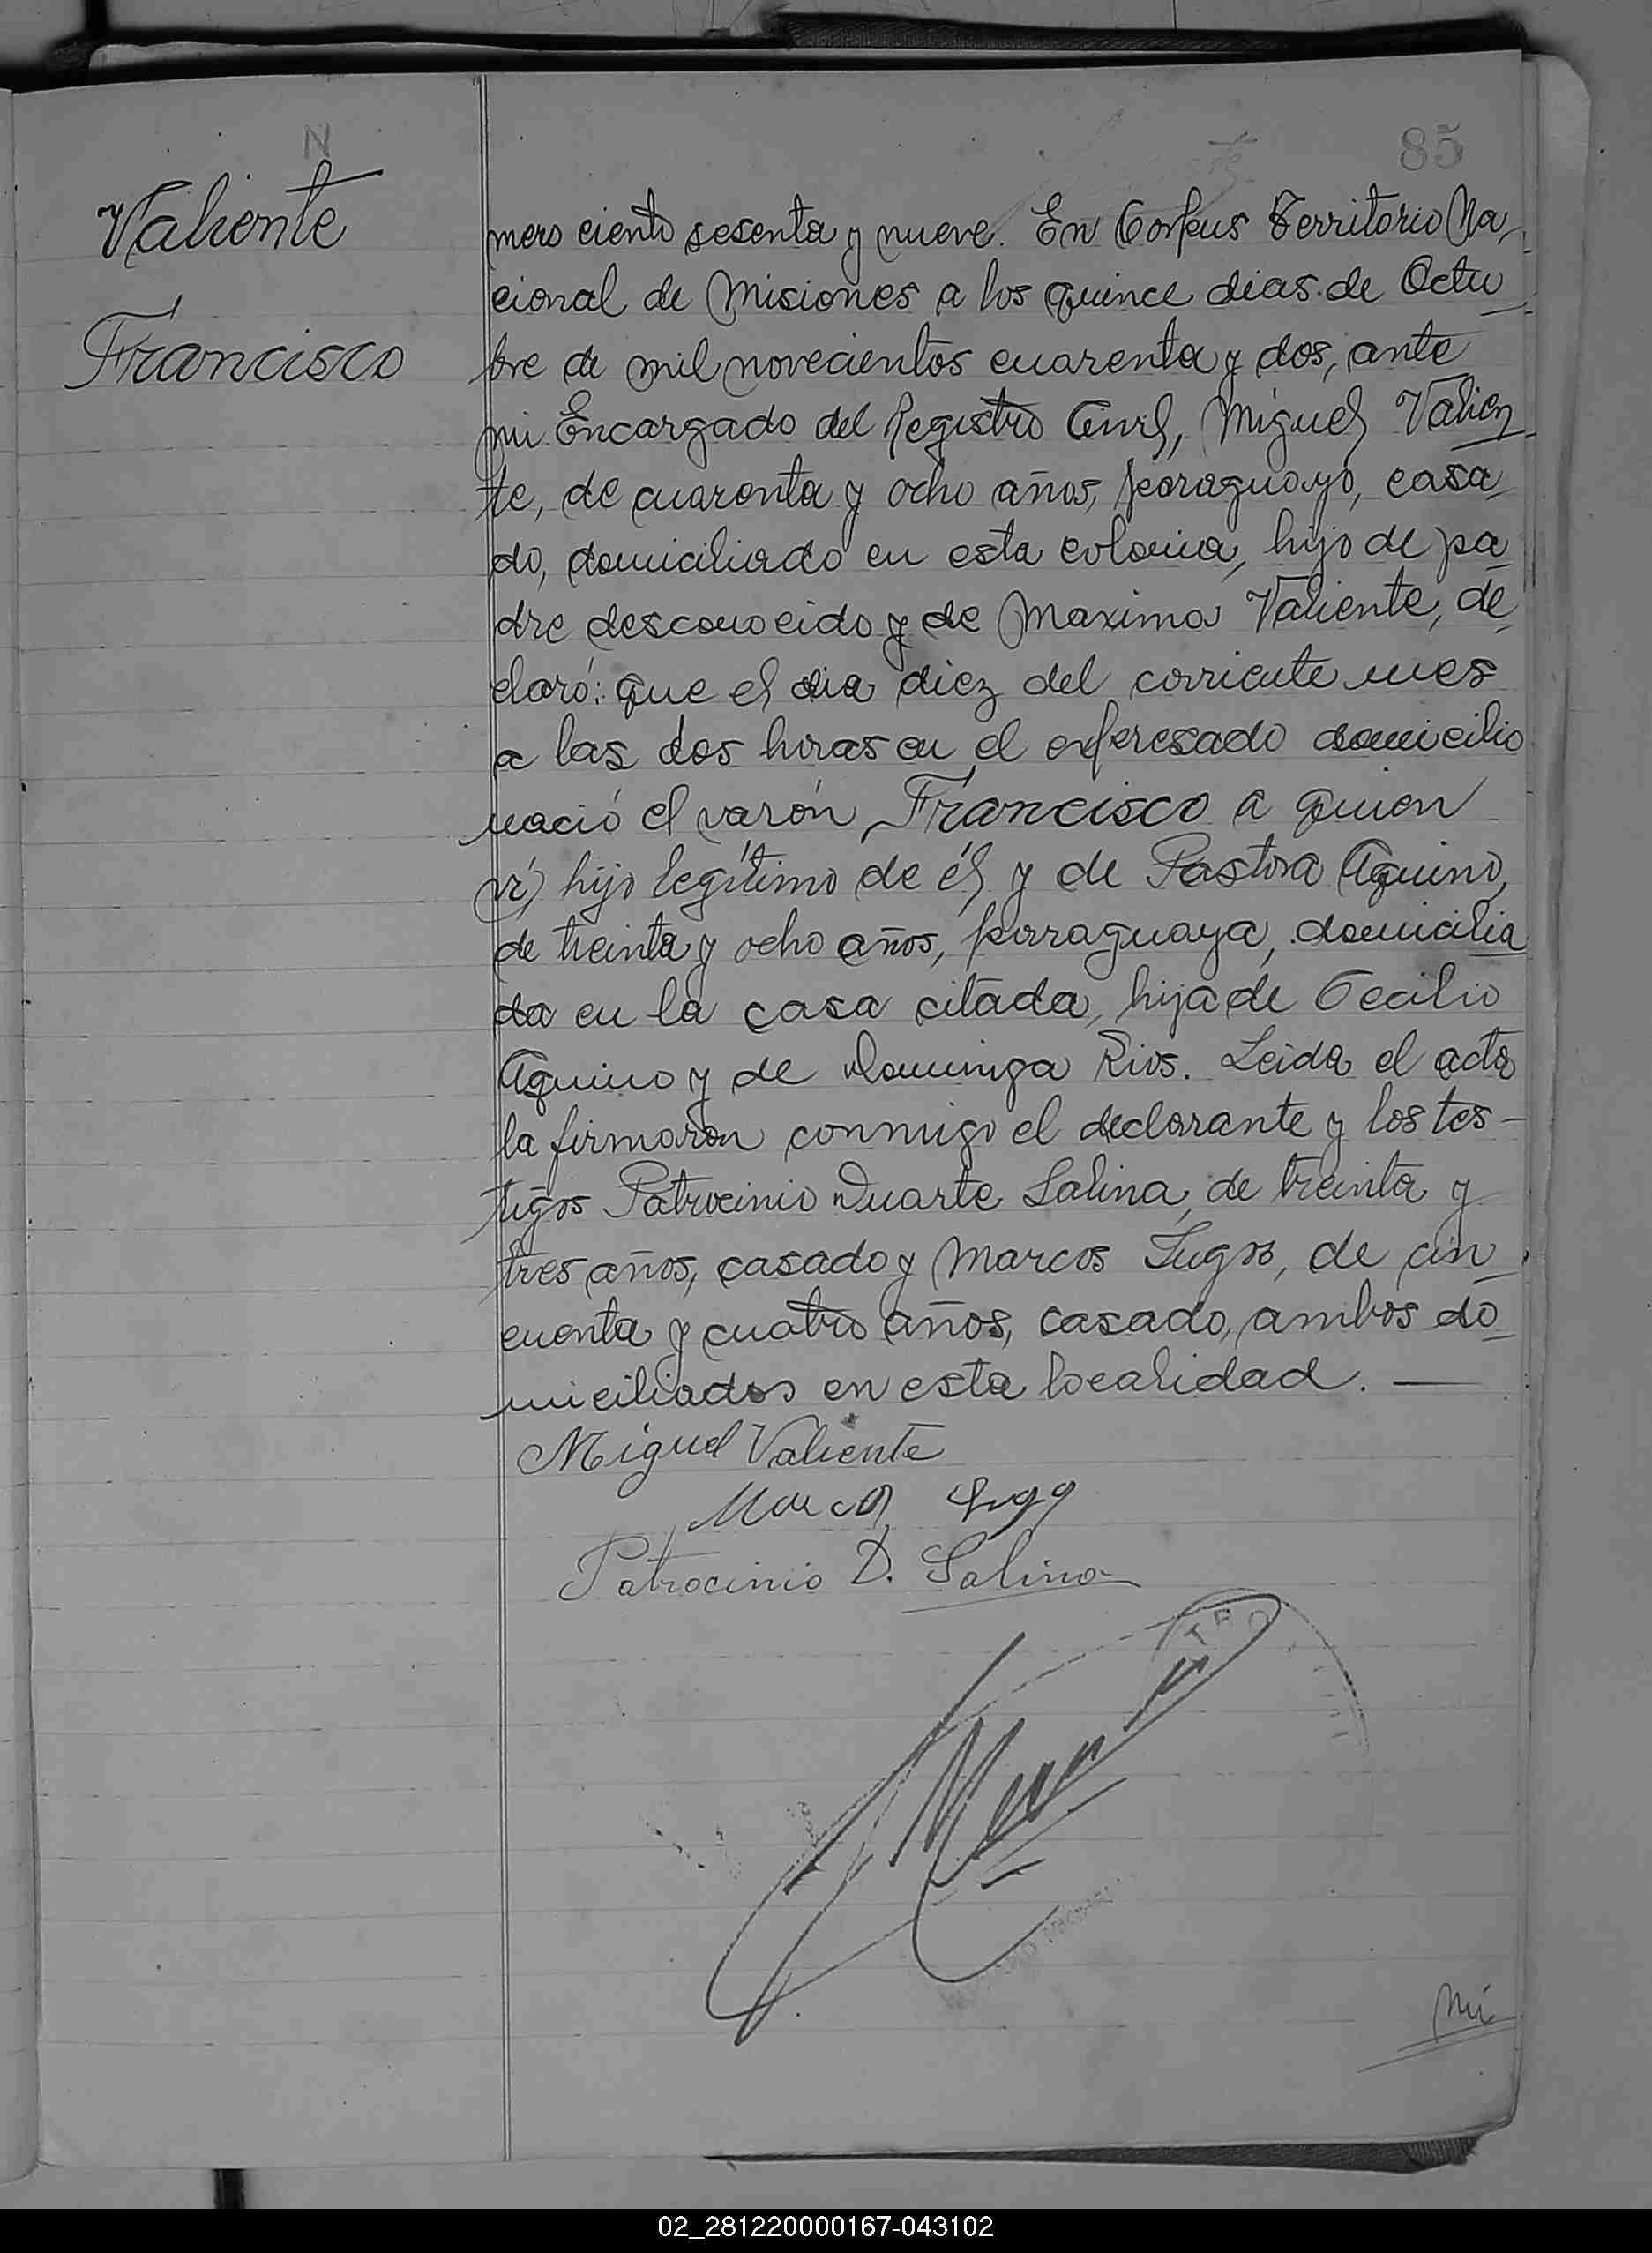 N
85
Valiente
Francisco
mero ciento sesenta y nueve. En Corpus Territorio Na-
cional de Misiones a los quince dias de Octu
bre de mil novecientos cuarenta y dos, ante
mi Encargado del Registro Civil, Miguel Valien
te, de cuarenta y ocho años, paraguayo, casa
do, domiciliado en esta colonia, hijo de pa
dre desconocido y de Maxima Valiente, de
claró: que el dia diez del corriente mes
a las dos horas en el expresado domicilio
nació el varón Francisco a quien
ví, hijo legítimo de él y de Pastora Aquino,
de treinta y ocho años, paraguaya, domicilia
da en la casa citada, hija de Cecilio
Aquino y de Dominga Rios. Leida el acta
la firmaron conmigo el declarante y los tes-
tigos Patrocinio Duarte Salina, de treinta y
tres años, casado y Marcos Lugo, de cin
cuenta y cuatro años, casado, ambos do
miciliados en esta localidad. —
Miguel Valiente
Marcos Lugo
Patrocinio D. Salina
Nú
02_281220000167-043102